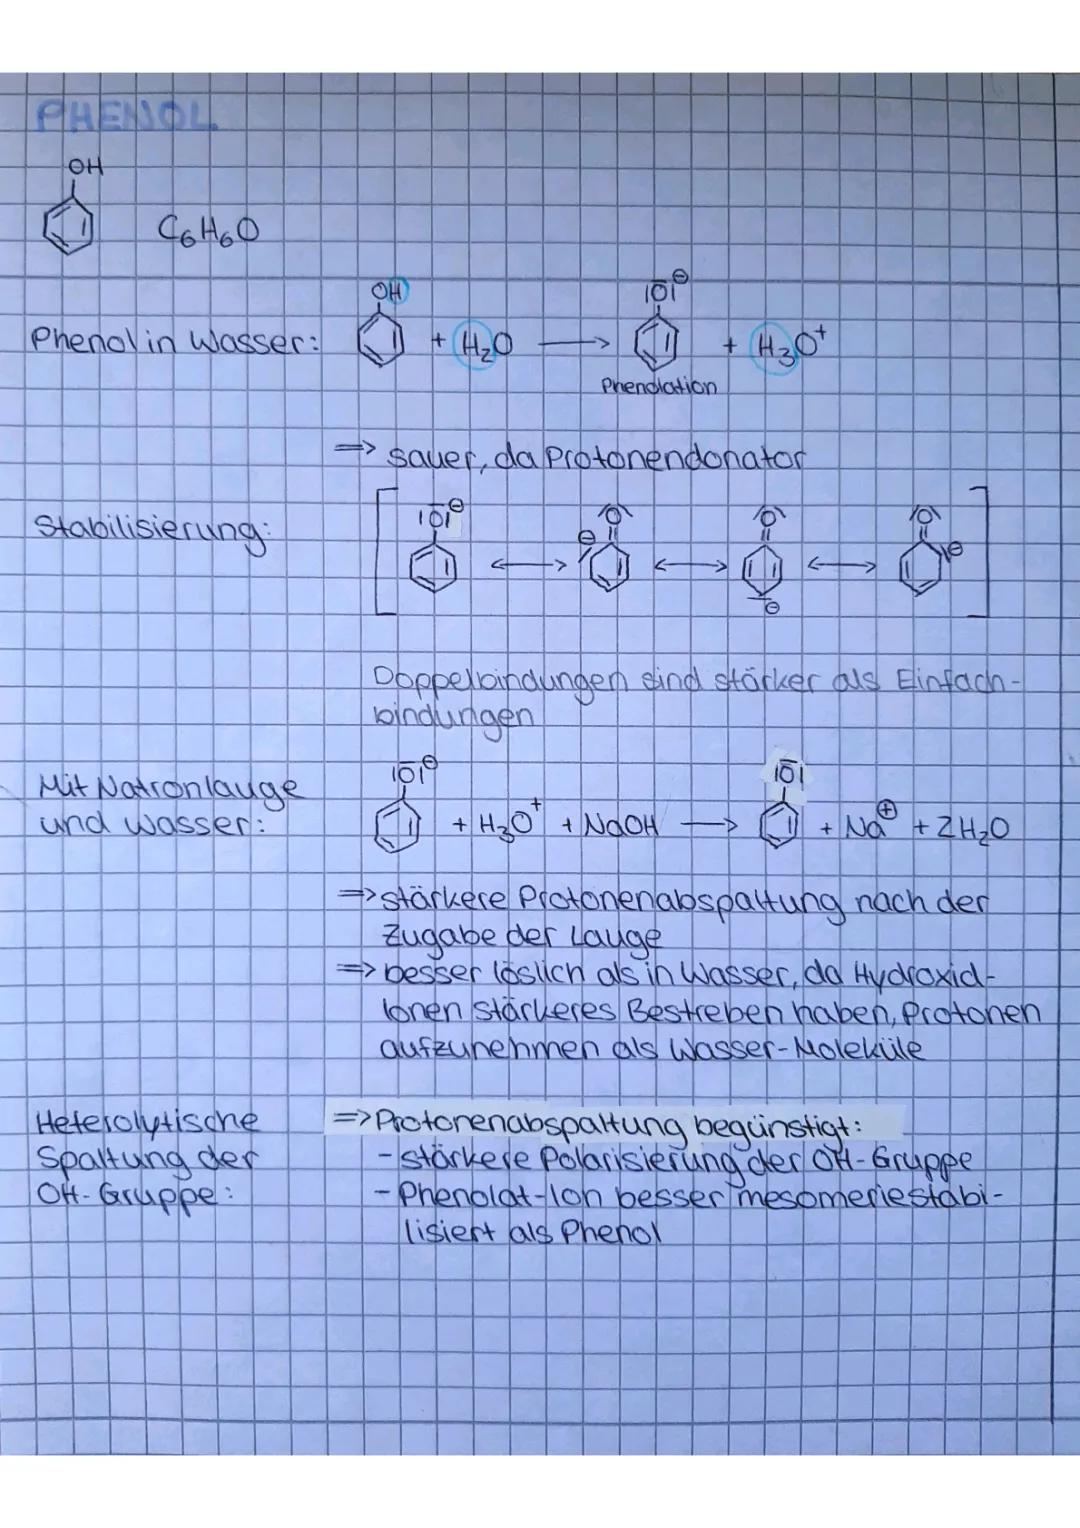 PHENOL
OH
C₆H₆O
OH |O̅|⊖
Phenol in Wasser: + H₂O → + H₃O⁺
Phenolation
=> sauer, da Protonendonator
Stabilisierung: [ |O̅|⊖ ↔ ⊖ O ↔ O ⊖ ↔ O ⊖ ]
Doppelbindungen sind stärker als Einfach-
bindungen
|O̅|⊖ |O̅|
Mit Natronlauge
und Wasser: + H₃O⁺ + NaOH → + Na⊕ + 2H₂O
=> stärkere Protonenabspaltung nach der
Zugabe der Lauge
=> besser löslich als in Wasser, da Hydroxid-
Ionen stärkeres Bestreben haben, Protonen
aufzunehmen als Wasser-Moleküle
Heterolytische => Protonenabspaltung begünstigt:
Spaltung der - stärkere Polarisierung der OH-Gruppe
OH-Gruppe: - Phenolat-Ion besser mesomeriestabi-
lisiert als Phenol